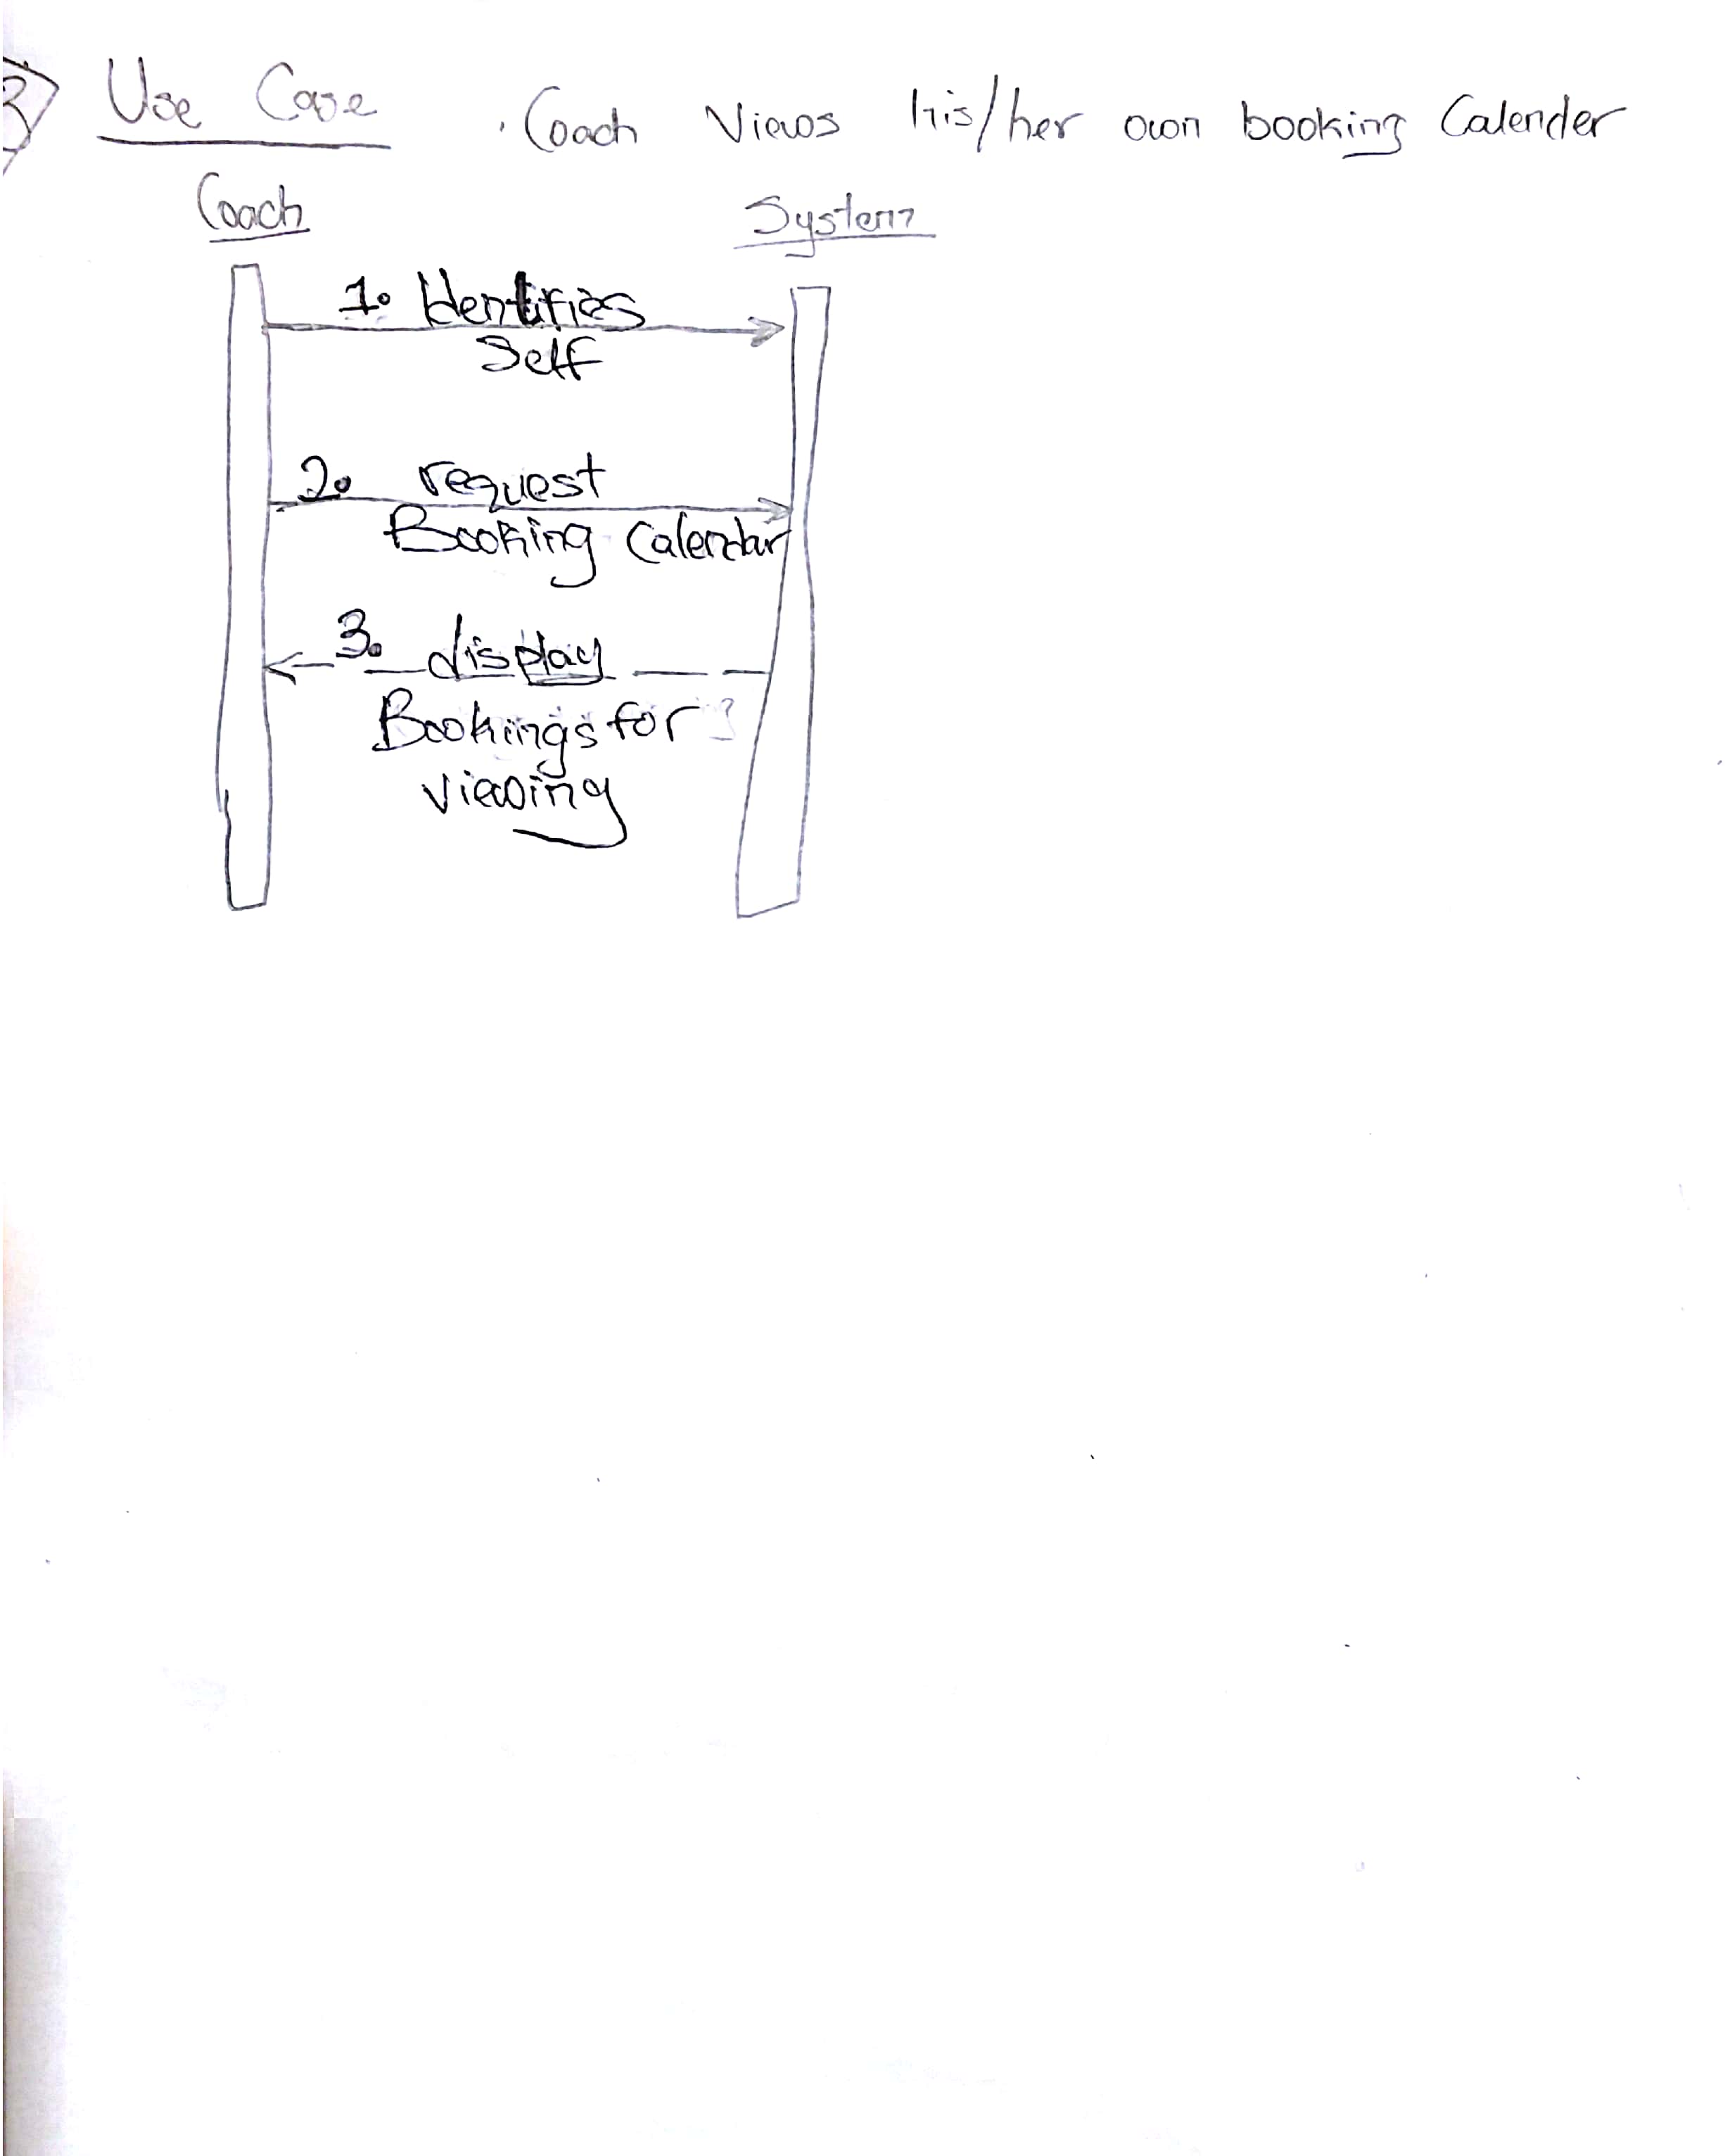 Use Case . Coach Views his/her own booking Calender
Coach System
1. Identifies
Self
2. request
Booking Calendar
3. display
Bookings for
viewing